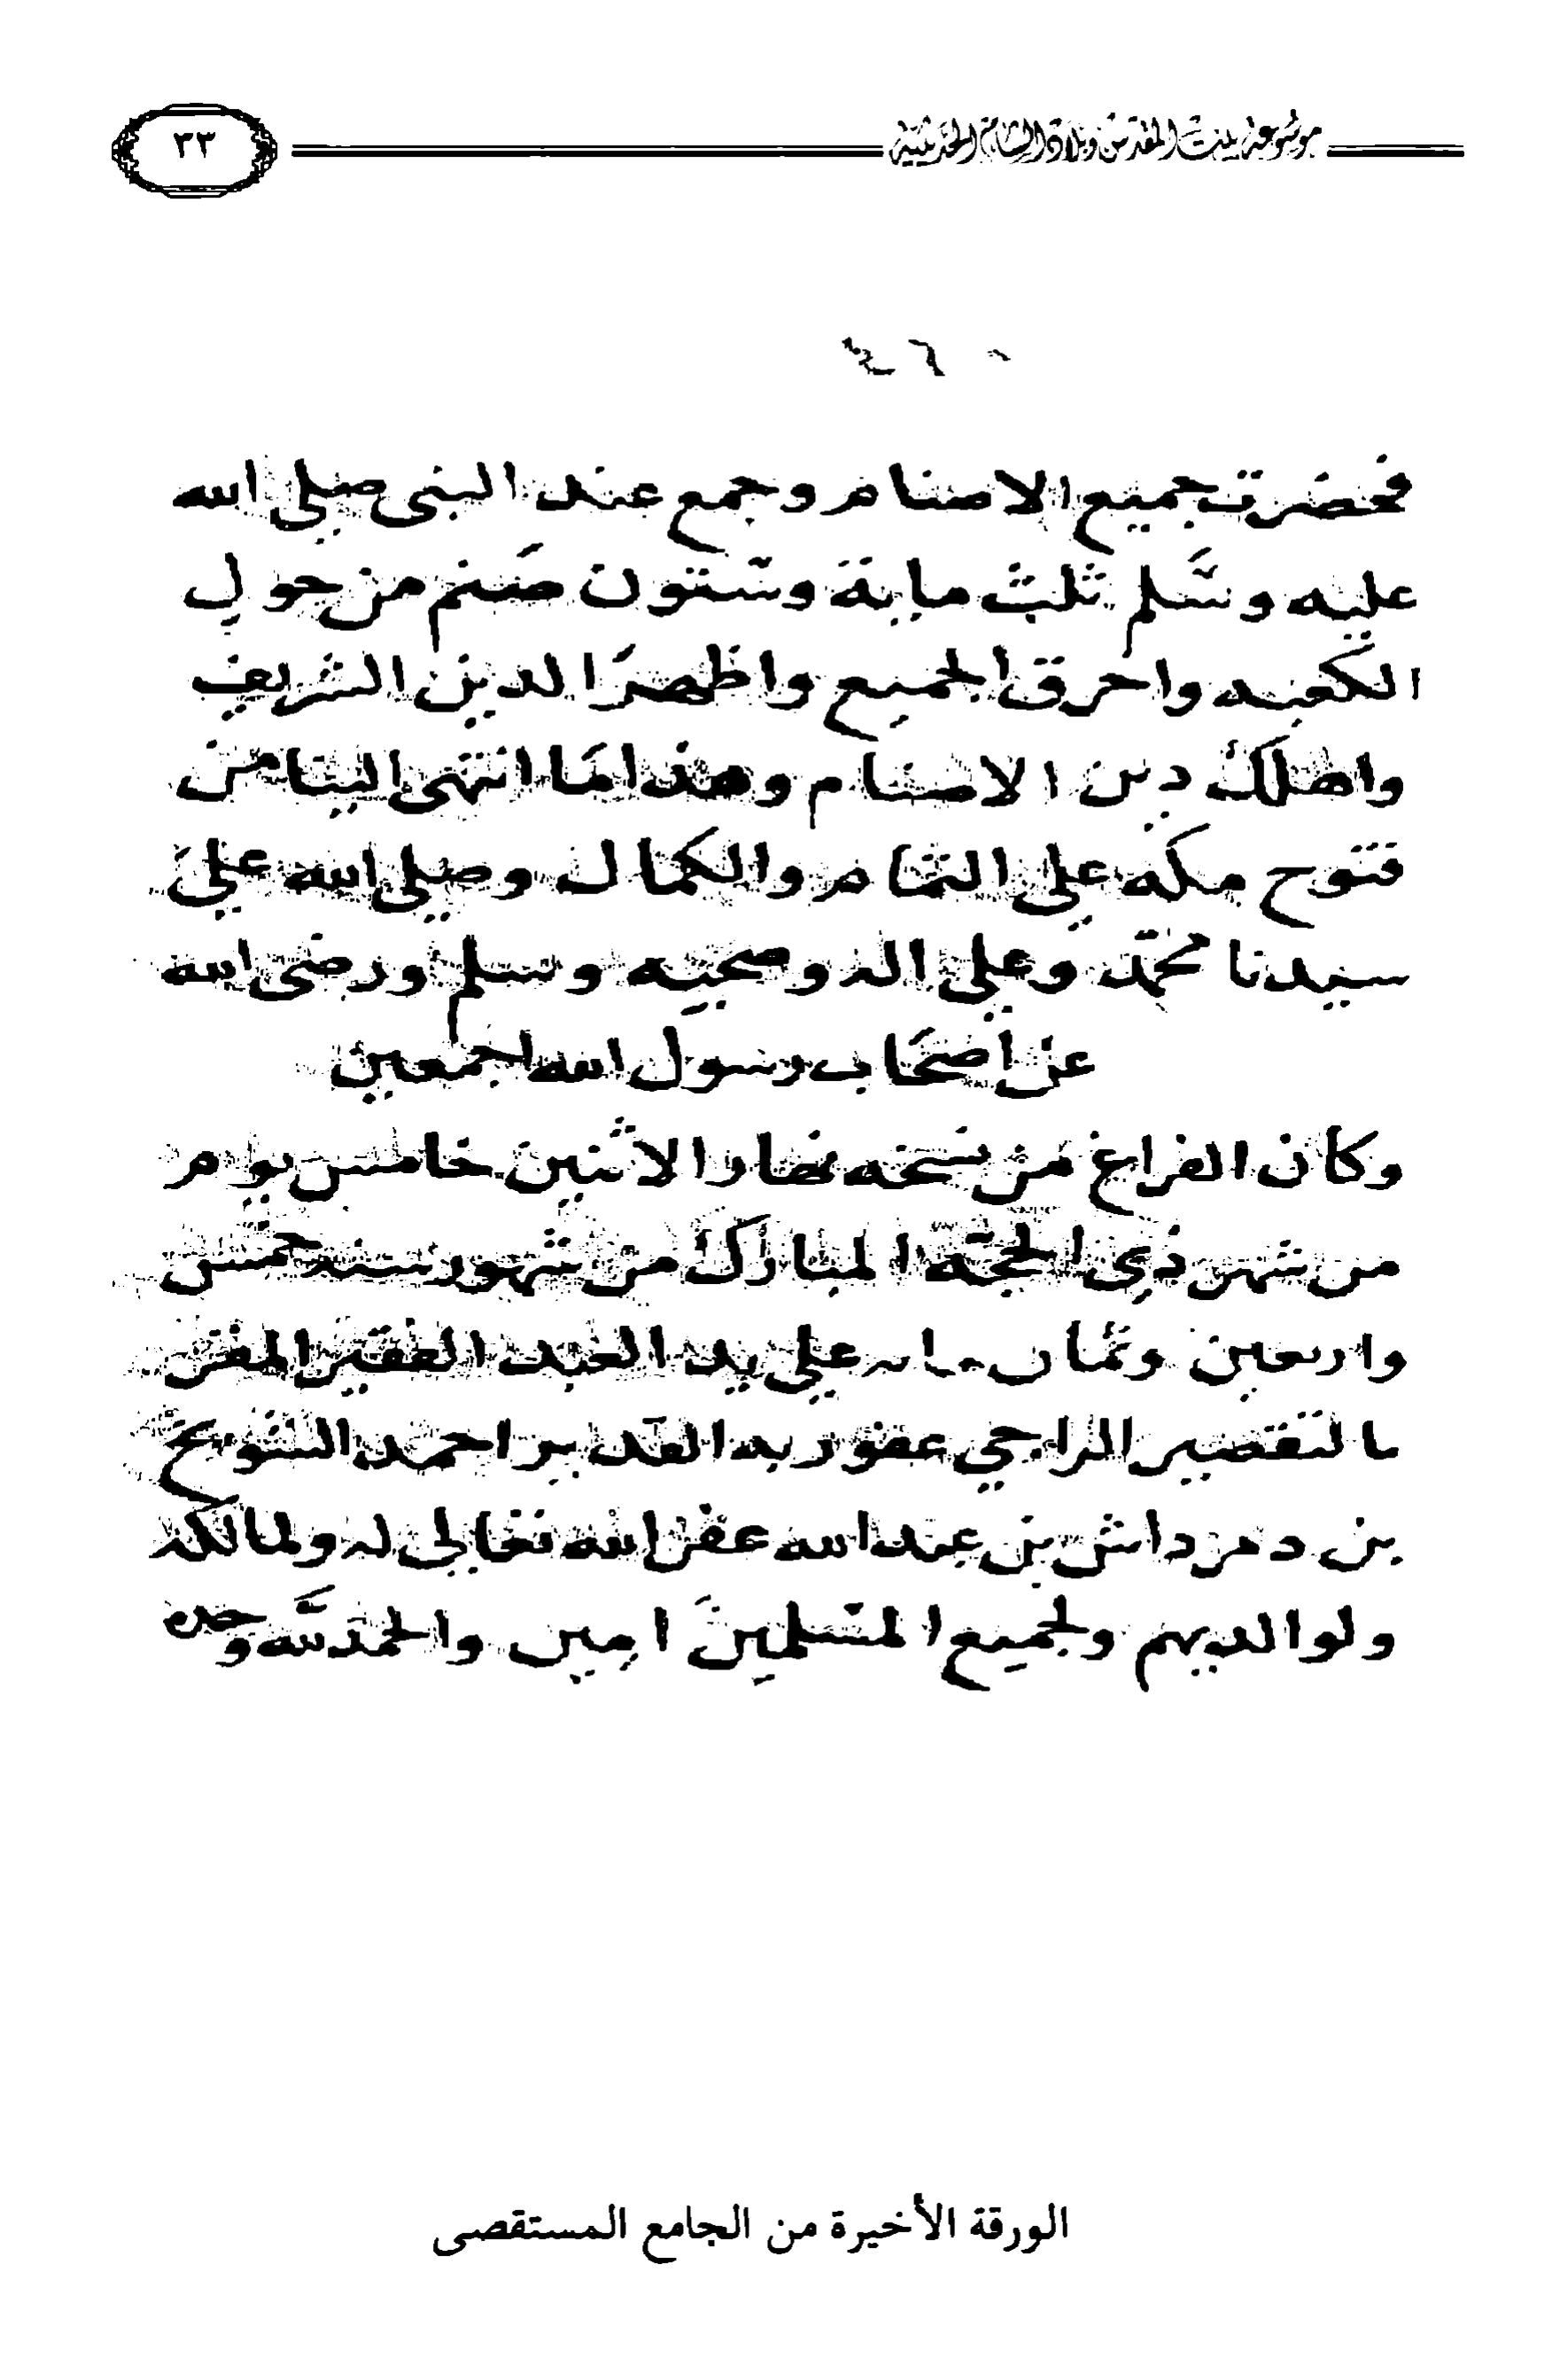 موسوعة بيت المقدس وبلاد الشام الحديثية
٣٣
٤٦٠
فحضرت جميع الاصنام وجمع عند النبي صلى الله
عليه وسلم ثلث ماية وستون صنم من حول
الكعبه واحرق الجميع واظهر الدين الشريف
واهلك دين الاصنام وهذا ما انتهى الينا من
فتوح مكه على التمام والكمال وصلى الله على
سيدنا محمد وعلى اله وصحبه وسلم ورضى الله
عن اصحاب رسول الله اجمعين
وكان الفراغ من نسخه نهار الاثنين خامس يوم
من شهر ذي الحجة المبارك من شهور سنه خمس
واربعين وثمان مايه على يد العبد الفقير المقر
بالتقصير الراجي عفو ربه القدير احمد الشويخ
بن دمرداش بن عبد الله غفر الله تعالى له ولمالكه
ولوالديهم ولجميع المسلمين امين والحمد لله وحده
الورقة الأخيرة من الجامع المستقصى